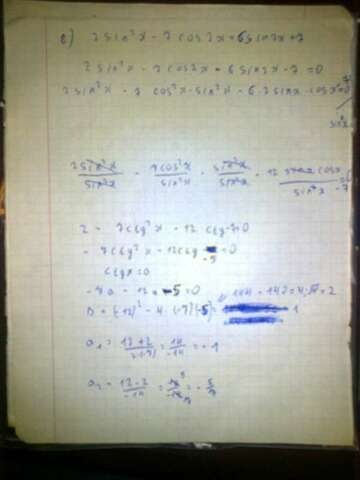 e) 2 sin²x - 7 cos2x = 6 sin2x + 7
2 sin²x - 7 cos2x - 6 sin2x - 7 = 0
2 sin²x - 7 cos²x - sin²x - 6·2sinx·cosx = 0
sin²x
2sin²x/sin²x - 7cos²x/sin²x - sin²x/sin²x - 12 cosx/sin²x - 7
2 - 7ctg²x - 12 ctg - 7 = 0
- 7ctg²x - 12ctg - 5 = 0
ctgx = a
-7a - 12a - 5 = 0
D = (-12)² - 4·(-7)(-5) = 144 - 140 = 4; √ = 2
a₁ = 12+2/2·(-7) = 14/-14 = -1
a₂ = 12-2/-14 = = -5/7